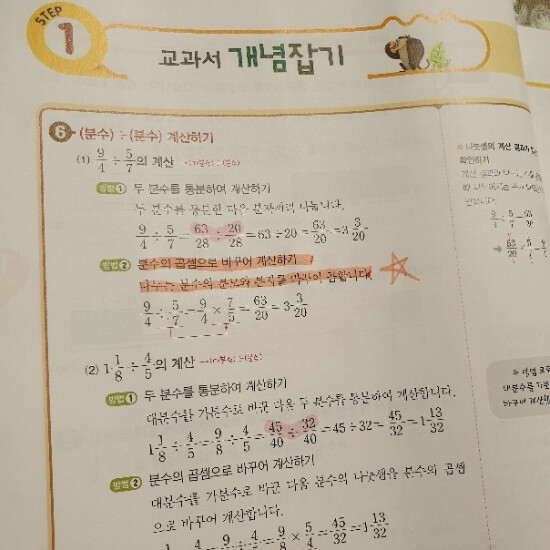 STEP 1
교과서 개념잡기
6 (분수) ÷ (분수) 계산하기
(1) 9/4 ÷ 5/7의 계산
방법 1 두 분수를 통분하여 계산하기
두 분수를 통분한 다음 분자끼리 나눕니다.
9/4 ÷ 5/7 = 63/28 ÷ 20/28 = 63 ÷ 20 = 63/20 = 3 3/20
방법 2 분수의 곱셈으로 바꾸어 계산하기
나누는 분수의 분모와 분자를 바꾸어 곱합니다.
9/4 ÷ 5/7 = 9/4 × 7/5 = 63/20 = 3 3/20
(2) 1 1/8 ÷ 4/5의 계산
방법 1 두 분수를 통분하여 계산하기
대분수를 가분수로 바꾼 다음 두 분수를 통분하여 계산합니다.
1 1/8 ÷ 4/5 = 9/8 ÷ 4/5 = 45/40 ÷ 32/40 = 45 ÷ 32 = 45/32 = 1 13/32
방법 2 분수의 곱셈으로 바꾸어 계산하기
대분수를 가분수로 바꾼 다음 분수의 나눗셈을 분수의 곱셈
으로 바꾸어 계산합니다.
1 1/8 ÷ 4/5 = 9/8 ÷ 4/5 = 9/8 × 5/4 = 45/32 = 1 13/32
나눗셈의 계산 결과가
확인하기
계산 결과
9/4 ÷ 5/7 = 63/20
→ 63/20 × 5/7 = 9/4
대분수를
바꾸어 계산